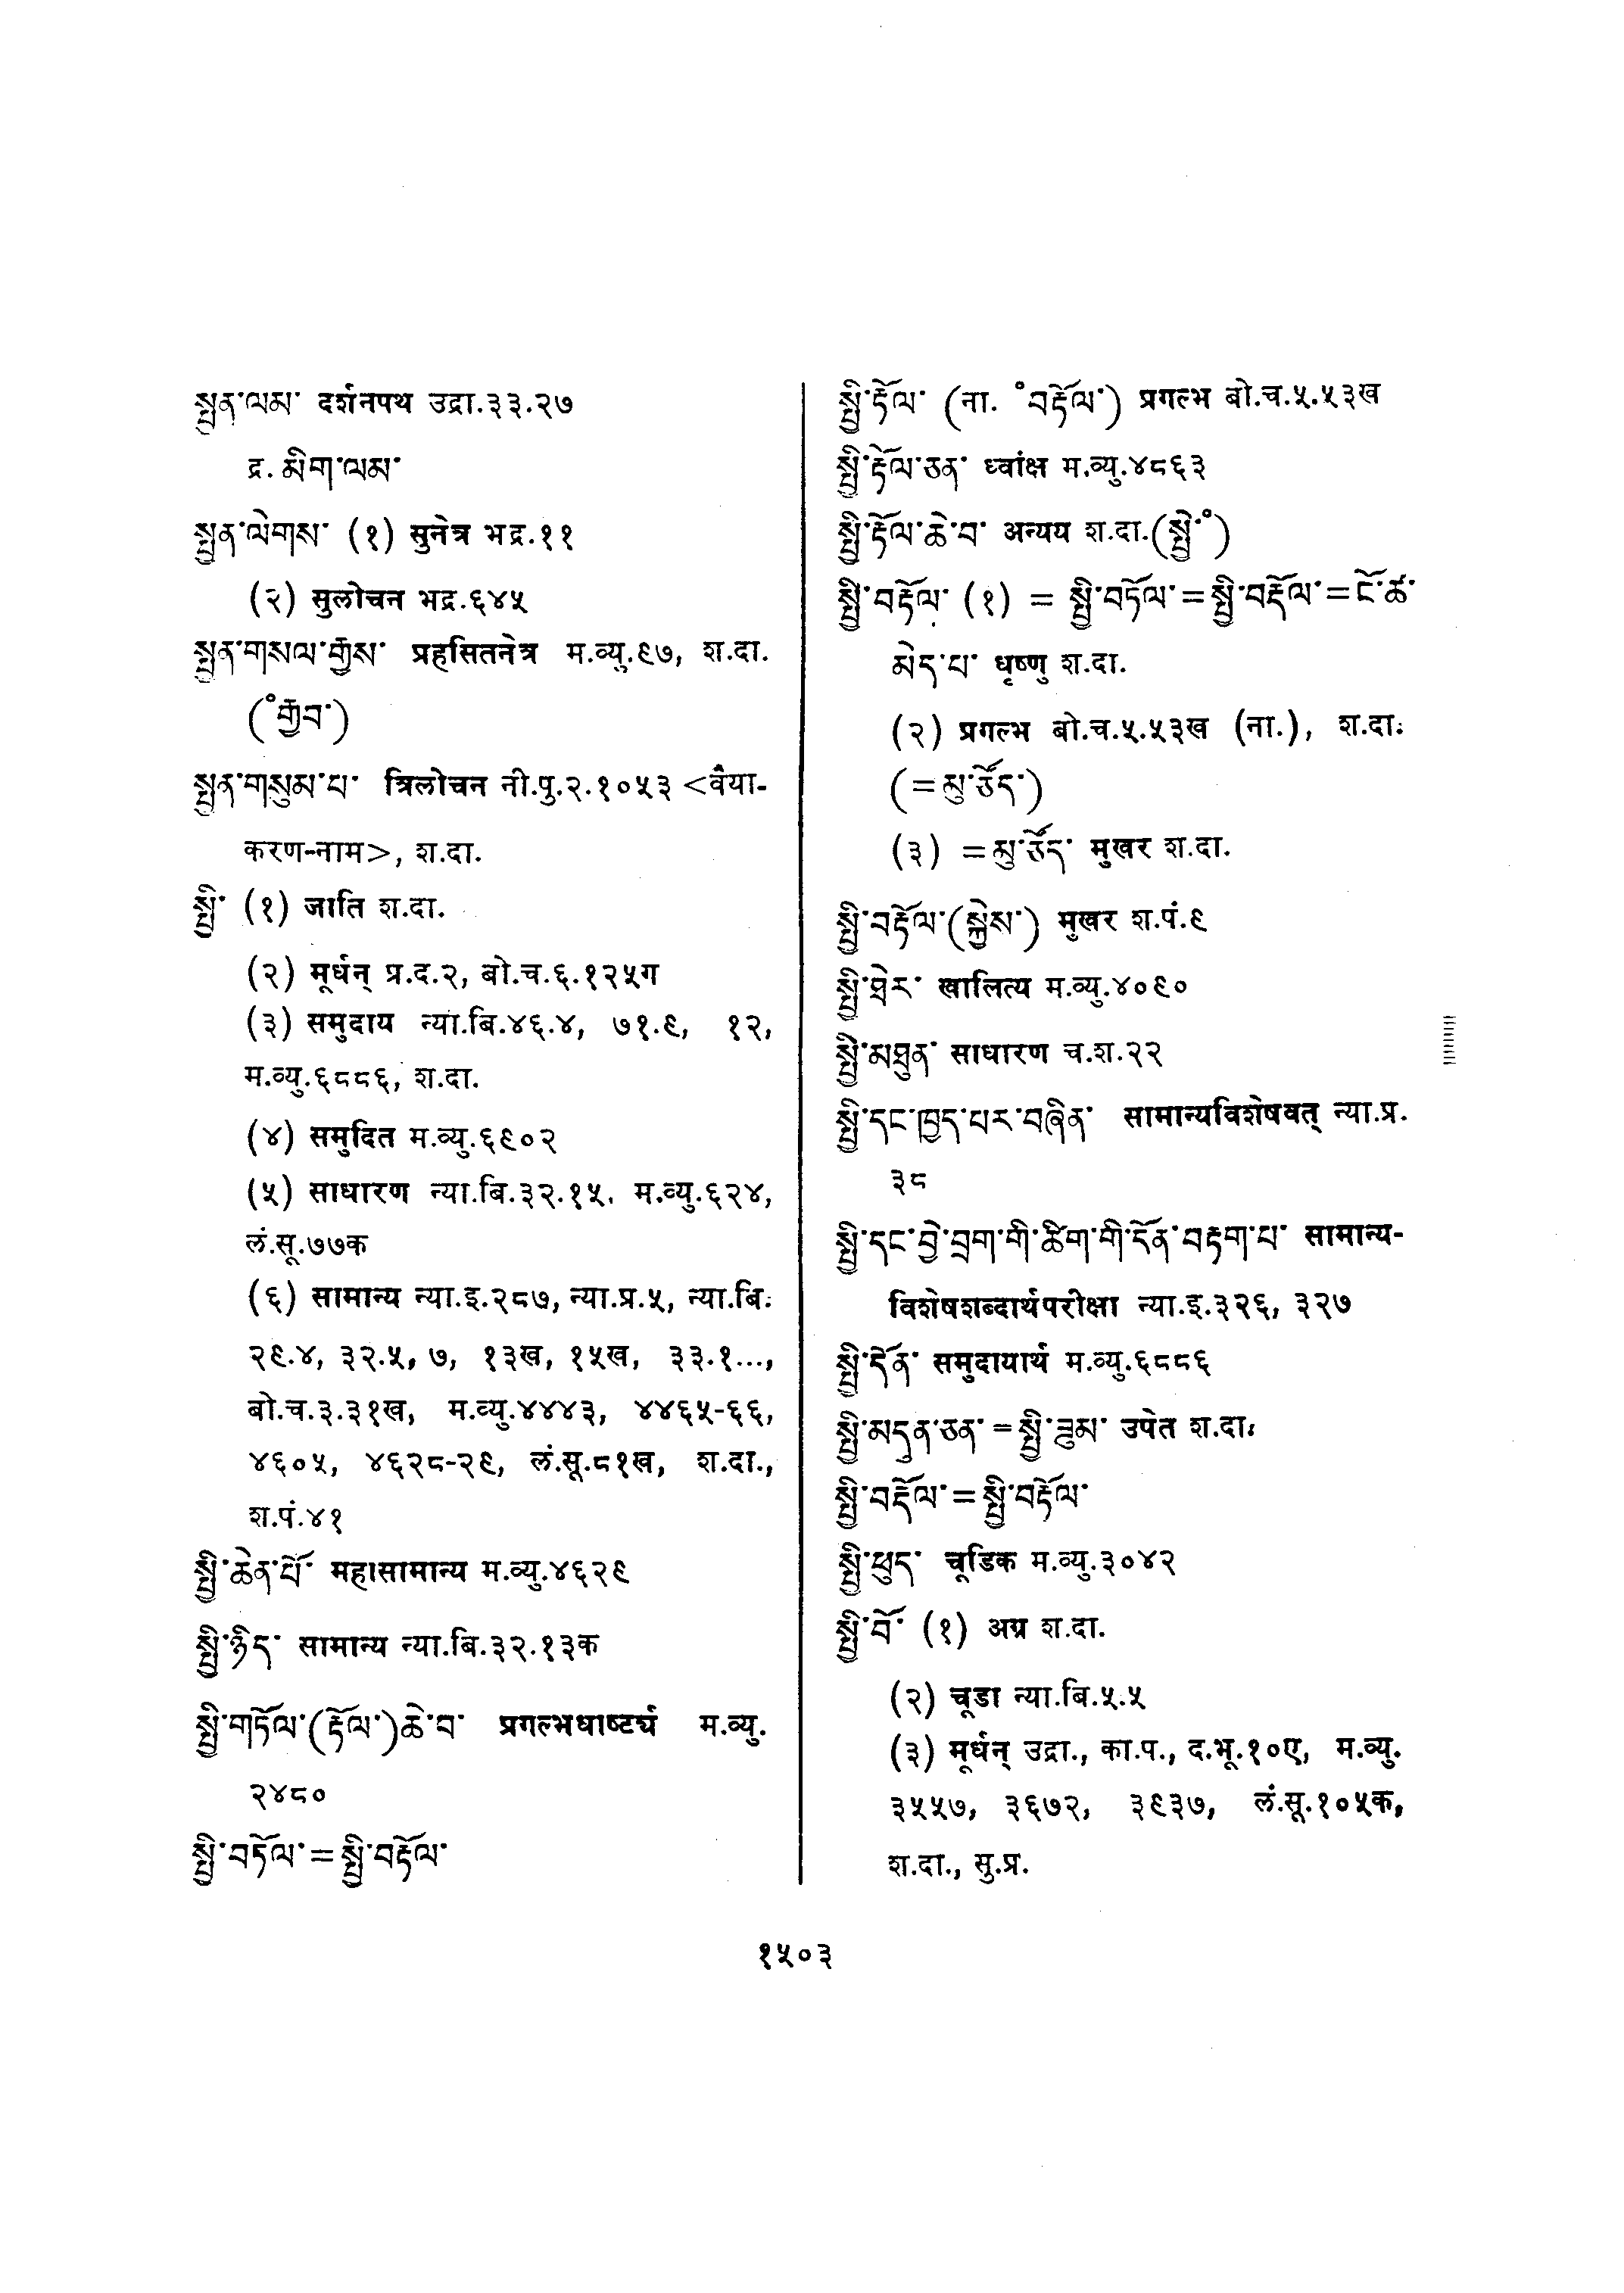 སྤྱན་ལམ་ दर्शनपथ उद्रा.३३.२७
द्र. མིག་ལམ་
སྤྱན་ལེགས་ (१) सुनेत्र भद्र.११
(२) सुलोचन भद्र.६४५
སྤྱན་གསལ་གྱིས་ प्रहसितनेत्र म.व्यु.९७, श.दा.
(॰གྱིབ་)
སྤྱན་གསུམ་པ་ त्रिलोचन नी.पु.२.१०५३ <वैया-
करण-नाम>, श.दा.
སྤྱི་ (१) जाति श.दा.
(२) मूर्धन् प्र.द.२, बो.च.६.१२५ग
(३) समुदाय न्या.बि.४६.४, ७१.९, १२,
म.व्यु.६८८६, श.दा.
(४) समुदित म.व्यु.६९०२
(५) साधारण न्या.बि.३२.१५. म.व्यु.६२४,
लं.सू.७७क
(६) सामान्य न्या.इ.२८७, न्या.प्र.५, न्या.बि.
२९.४, ३२.५, ७, १३ख, १५ख, ३३.१...,
बो.च.३.३१ख, म.व्यु.४४४३, ४४६५-६६,
४६०५, ४६२८-२९, लं.सू.८१ख, श.दा.,
श.पं.४१
སྤྱི་ཆེན་པོ་ महासामान्य म.व्यु.४६२९
སྤྱི་ཉིད་ सामान्य न्या.बि.३२.१३क
སྤྱི་གཏོལ་(རྟོལ་)ཆེ་བ་ प्रगल्भधाष्टर्च म.व्यु.
२४८०
སྤྱི་བཏོལ་=སྤྱི་བརྟོལ་
སྤྱི་རྟོལ་ (ना. ॰བརྟོལ་) प्रगल्भ बो.च.५.५३ख
སྤྱི་རྟོལ་ཅན་ ध्वांक्ष म.व्यु.४८६३
སྤྱི་རྟོལ་ཆེ་བ་ अन्यय श.दा.(སྤྱི་॰)
སྤྱི་བརྟོལ་ (१) = སྤྱི་བཏོལ་=སྤྱི་བརྡོལ་=ངོ་ཚ་
མེད་པ་ धृष्णु श.दा.
(२) प्रगल्भ बो.च.५.५३ख (ना.), श.दा.
(=མུ་ཅོད་)
(३) =མུ་ཅོད་ मुखर श.दा.
སྤྱི་བརྟོལ་(སྐྱེས་) मुखर श.पं.९
སྤྱི་ཐེར་ खालित्य म.व्यु.४०९०
སྤྱི་མཐུན་ साधारण च.श.२२
སྤྱི་དང་ཁྱད་པར་བཞིན་ सामान्यविशेषवत् न्या.प्र.
३८
སྤྱི་དང་བྱེ་བྲག་གི་ཚིག་གི་དོན་བརྟག་པ་ सामान्य-
विशेषशब्दार्थपरीक्षा न्या.इ.३२६, ३२७
སྤྱི་དོན་ समुदायार्थ म.व्यु.६८८६
སྤྱི་མདུན་ཅན་=སྤྱི་ཟུམ་ उपेत श.दा.
སྤྱི་བརྡོལ་=སྤྱི་བརྟོལ་
སྤྱི་ཕུད་ चूडिक म.व्यु.३०४२
སྤྱི་བོ་ (१) अग्र श.दा.
(२) चूडा न्या.बि.५.५
(३) मूर्धन् उद्रा., का.प., द.भू.१०ए, म.व्यु.
३५५७, ३६७२, ३९३७, लं.सू.१०५क,
श.दा., सु.प्र.
१५०३